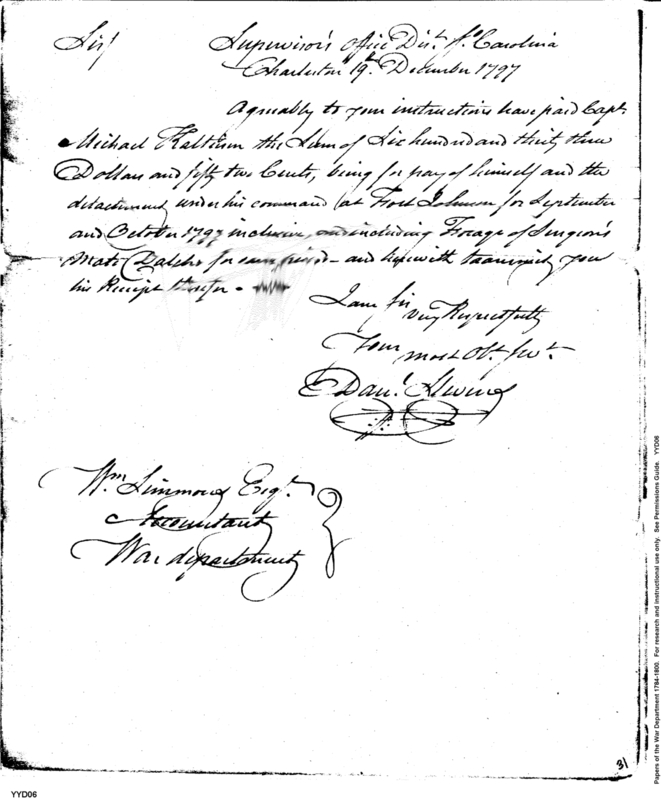 Sir/ Supervisor's Office Dist. So. Carolina
Charleston 19th December 1797
Agreeably to your instructions have paid Capt.
Michael Kalteisen the Sum of Six hundred and thirty three
Dollars and fifty two Cents, being for pay of himself and the
detachment under his command at Fort Johnson for September
and October 1797 inclusive, and including Forage of Surgeon's
Mate Dalcho for same period - and herewith transmit you
his Receipt therefor -
I am Sir
very Respectfully
Your
most Obt. Servt.
Danl. Stevens
Wm. Simmons Esqr.
Accountant
War department
31
YYD06
Papers of the War Department 1784-1800. For research and instructional use only. See Permissions Guide. YYD06